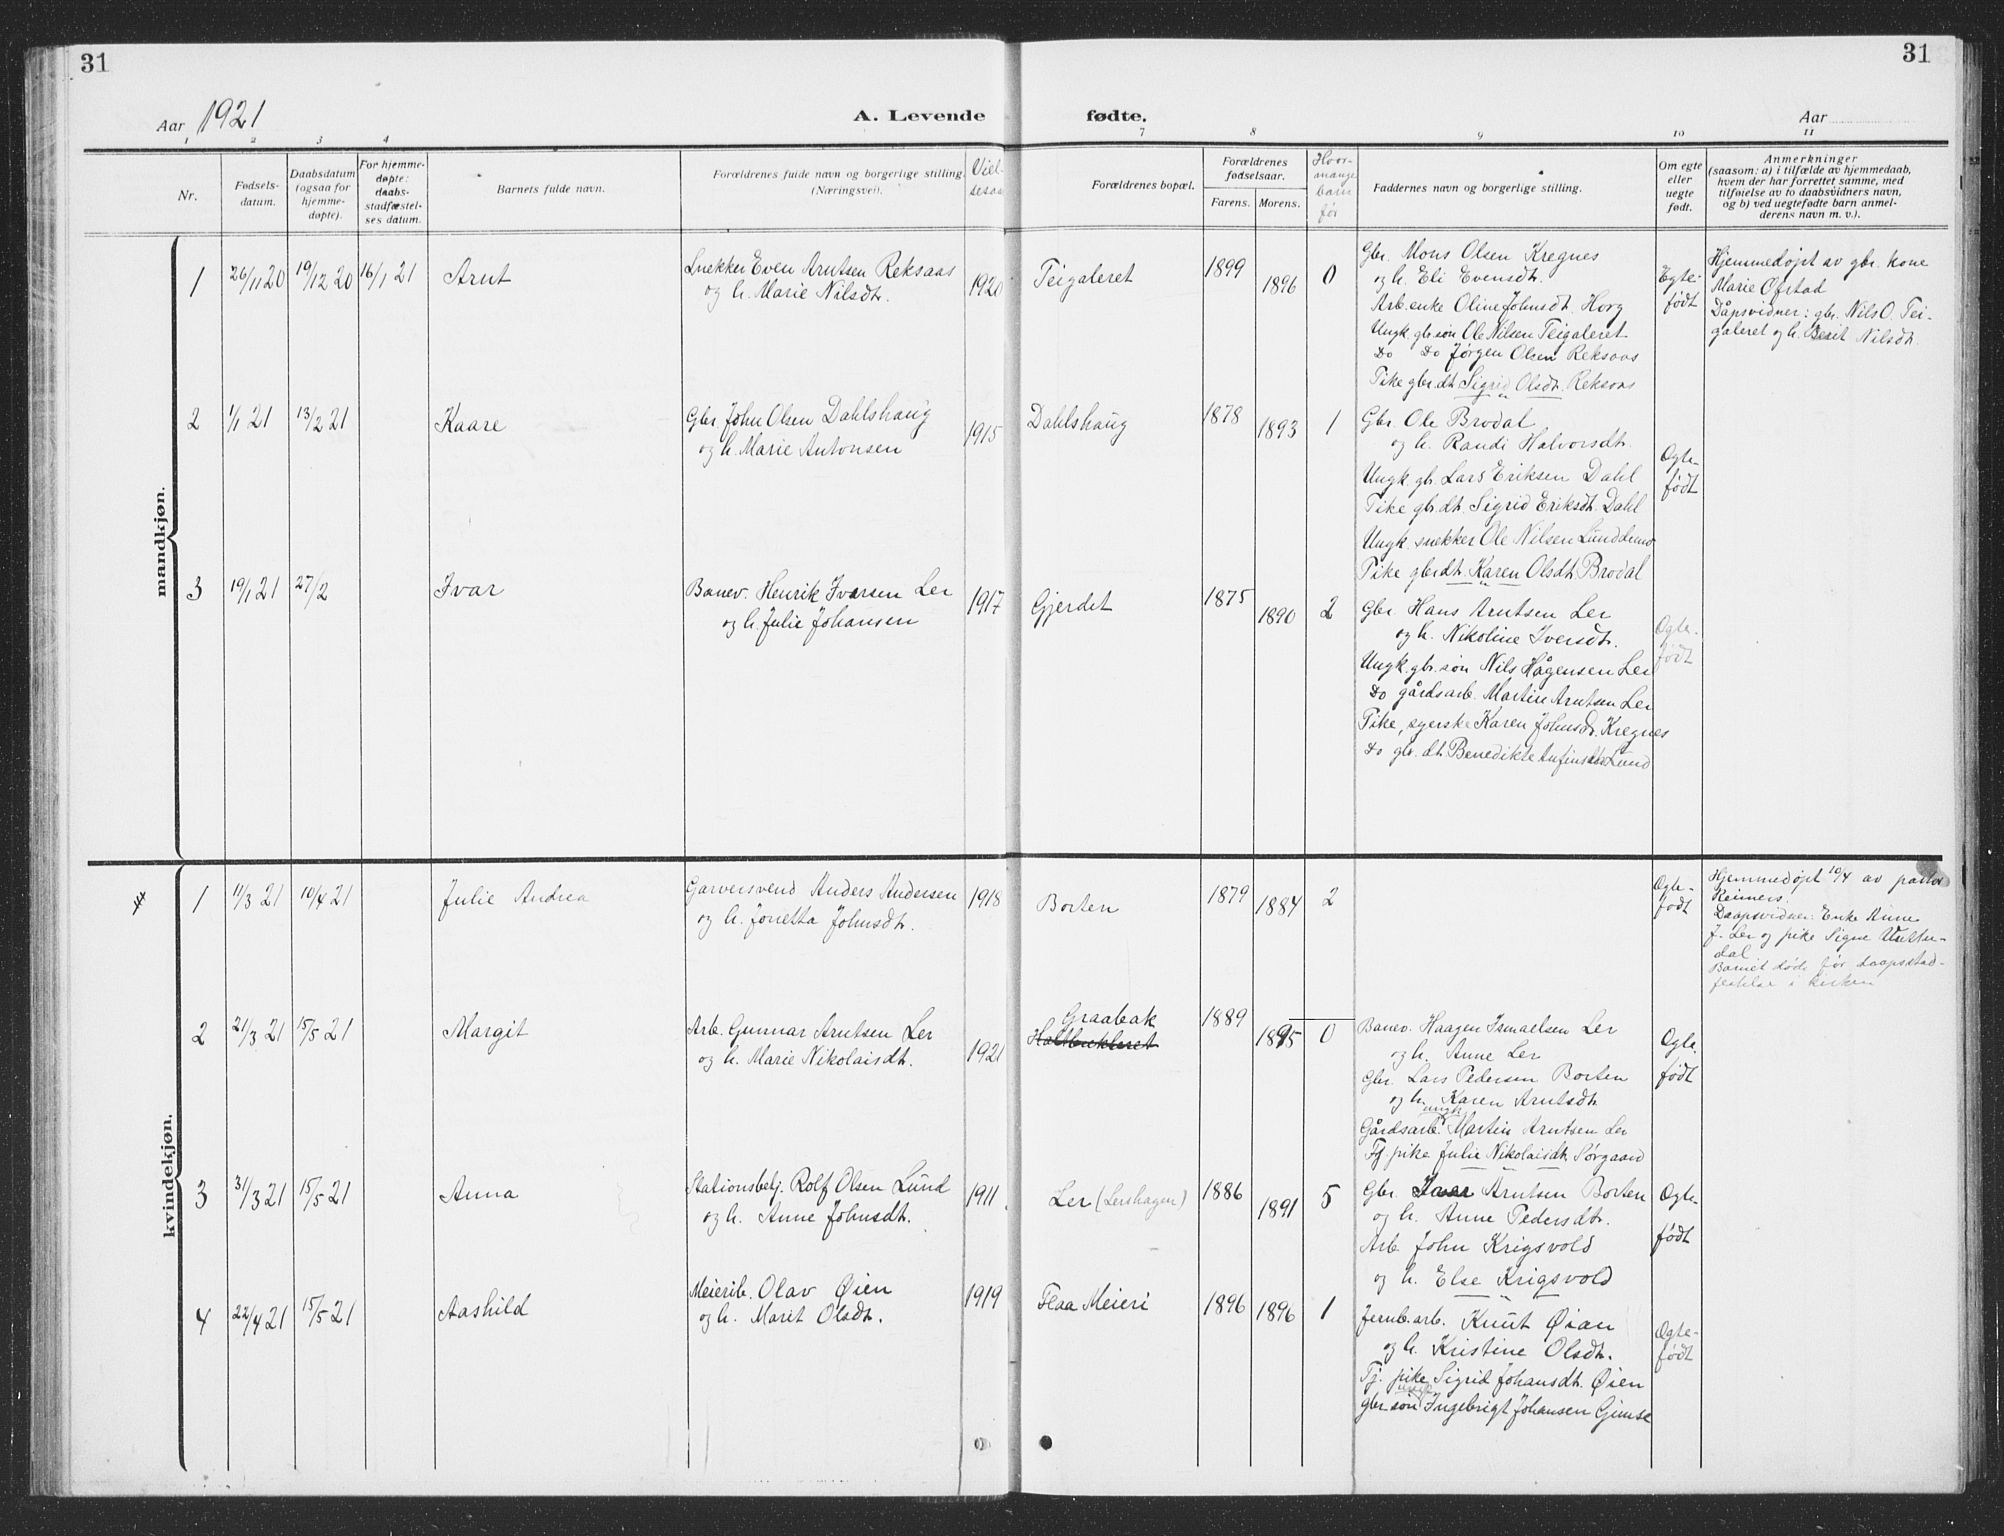 31
31
Aar 1921
A. Levende
fødte.
Aar
1 2 3 4 7 8 9 10 11
Nr.
Fødsels-
datum.
Daabsdatum
(ogsaa for
hjemme-
døpte).
For hjemme-
døpte:
daabs-
stadfæstel-
ses datum.
Barnets fulde navn.
Forældrenes fulde navn og borgerlige stilling.
(Næringsvei).
Viel-
sesaar
Forældrenes bopæl.
Forældrenes
fødselsaar.
Farens. Morens.
Hvor-
mange
barn
før
Faddernes navn og borgerlige stilling.
Om egte
eller
uegte
født.
Anmerkninger
(saasom: a) i tilfælde av hjemmedaab,
hvem der har forrettet samme, med
tilføielse av to daabsvidners navn,
og b) ved uegtefødte barn anmel-
derens navn m. v.).
mandkjøn.
1 26/11 20 19/12 20 16/1 21 Arnt
Snekker Even Arntsen Reksaas
og h. Marie Nilsdt.
1920 Teigaleret 1899 1896 0
Gbr. Mons Olsen Kregnes
og h. Eli Evensdt.
Arb.enke Oline Johnsdt. Horg
Ungk. gbr.søn Ole Nilsen Teigaleret
Do Do Jørgen Olsen Reksaas
Pike gbr.dt. Sigrid Olsdt. Reksaas
Egte-
født
Hjemmedøpt av gbr. kone
Marie Ofstad
Dåpsvidner: gbr. Nils O. Tei-
galeret og h. Berit Nilsdt.
2 1/1 21 13/2 21 Kaare
Gbr. John Olsen Dahlshaug
og h. Marie Antonsen
1915 Dahlshaug 1878 1893 1
Gbr. Ole Brodal
og h. Randi Halvorsdt.
Ungk. gb. Lars Eriksen Dahl
Pike gb.dt. Sigrid Eriksdt. Dahl
Ungk. snekker Ole Nilsen
Pike gbrdt. Karen Olsdt. Brodal
Egte-
født
3 19/1 21 27/2 Ivar
Banev. Henrik Ivarsen Ler
og h. Julie Johansen
1917 Gjerdet 1875 1890 2
Gbr. Hans Arntsen Ler
og h. Nikoline Iversdt.
Ungk. gb. søn Nils Hågensen Ler
Do gårdsarb. Martin Arntsen Ler
Pike, syerske Karen Johnsdt. Kregnes
Do gbr. dt. Benedikte Lund
Egte-
født
kvindekjøn.
1 11/3 21 10/4 21 Julie Andrea
Garversvend Anders Andersen
og h. Jonetta Johnsdt.
1918 Borten 1879 1884 2
Egte-
født
Hjemmedøpt 10/4 av pastor
Reimers.
Daapsvidner: Enke Anne
J. Ler og pike Signe
dal
Barnet døde før daapsstad-
festelse i kirken
2 21/3 21 15/5 21 Margit
Arb. Gunnar Arntsen Ler
og h. Marie Nikolaisdt.
1921
Graabak
1889 1895 0
Banev. Haagen Ismaelsen Ler
og h. Anne Ler
Gbr. Lars Pedersen Borten
og h. Karen Arntsdt.
ungk.
Gårdsarb. Martin Arntsen Ler
Tj. pike Julie Nikolaisdt. Sørgaard
Egte-
født
3 31/3 21 15/5 21 Anna
Stationsbetj. Rolf Olsen Lund
og h. Anne Johnsdt.
1911 Ler (Lershagen) 1886 1891 5
Gbr. Ivar Arntsen Borten
og h. Anne Pedersdt.
Arb. John Krigsvold
og h. Else Krigsvold
Egte-
født
4 22/4 21 15/5 21 Aashild
Meierib. Olav Øien
og h. Marit Olsdt.
1919 Flaa Meieri 1896 1896 1
Jernb.arb. Knut Øian
og h. Kristine Olsdt.
Tj. pike Sigrid Johansdt. Øien
ungk.
gbr søn Ingebrigt Johansen Gimse
Egte-
født